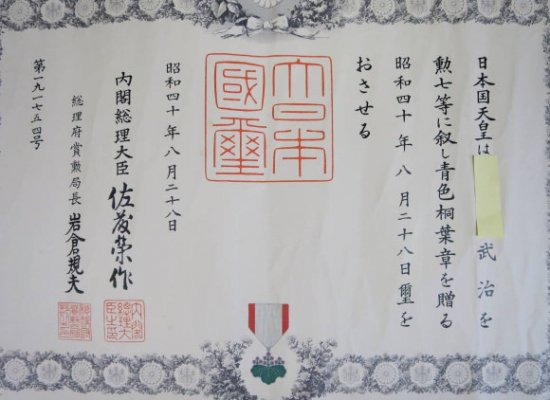 日本国天皇は 武治を
勲七等に叙し青色桐葉章を贈る
昭和四十年八月二十八日璽を
おさせる
大日本
國璽
昭和四十年八月二十八日
内閣総理大臣 佐藤榮作
総理府賞勲局長 岩倉規夫
第一九一七五四号